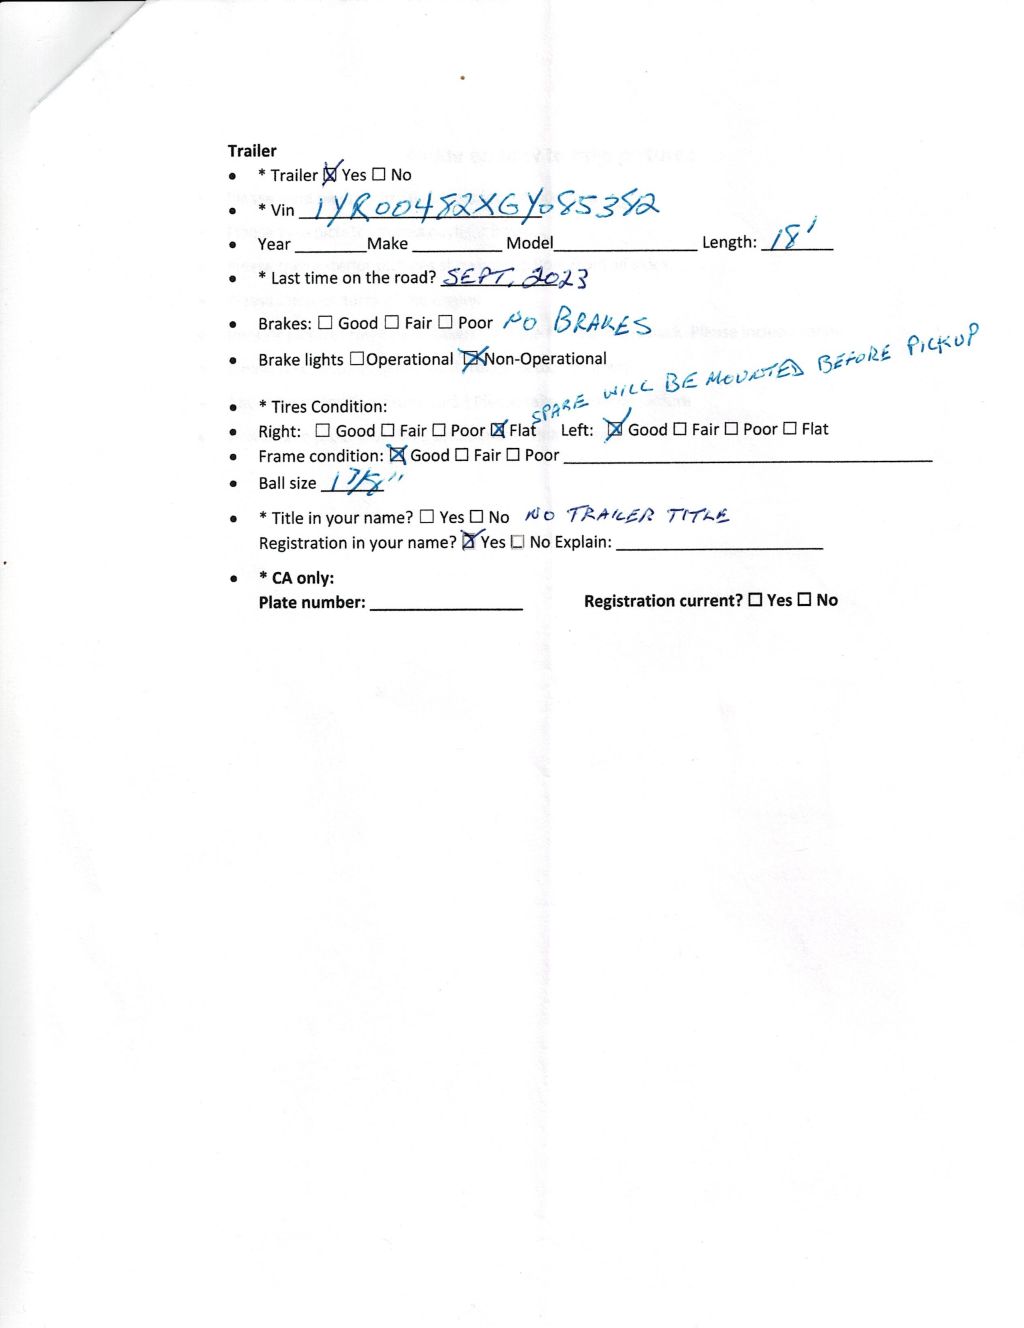 Trailer
• * Trailer ☒ Yes ☐ No
• * Vin 1YR00482XGY085382
• Year _______ Make _________ Model______________ Length: 18'
• * Last time on the road? SEPT. 2023
• Brakes: ☐ Good ☐ Fair ☐ Poor NO BRAKES
• Brake lights ☐Operational ☒Non-Operational
SPARE WILL BE MOUNTED BEFORE PICKUP
• * Tires Condition:
• Right: ☐ Good ☐ Fair ☐ Poor ☒ Flat Left: ☒ Good ☐ Fair ☐ Poor ☐ Flat
• Frame condition: ☒ Good ☐ Fair ☐ Poor ____________________
• Ball size 1 7/8"
• * Title in your name? ☐ Yes ☐ No NO TRAILER TITLE
Registration in your name? ☒ Yes ☐ No Explain: ____________________
• * CA only:
Plate number: ______________ Registration current? ☐ Yes ☐ No